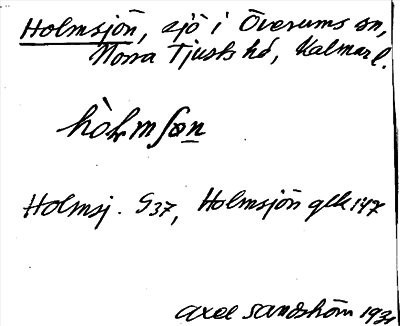 Holmsjön, sjö i Överums sn,
Norra Tjusts hd, Kalmar l.
hòlmʃøn
Holmsj. S37, Holmsjön glk 147
Axel Sandström 193